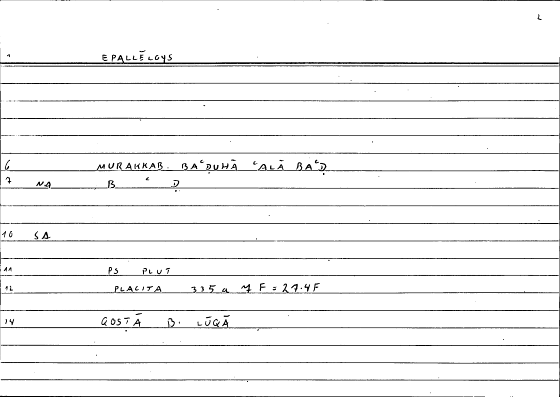 L
1 EPALLĒLOYS
6 MURAKKAB. BAʿḌUHĀ ʿALĀ BAʿḌ
7 NA B ʿ Ḍ
10 SA
11 PS PLUT
12 PLACITA 335 a 7 F = 27.4F
14 QOSṬĀ B. LŪQĀ